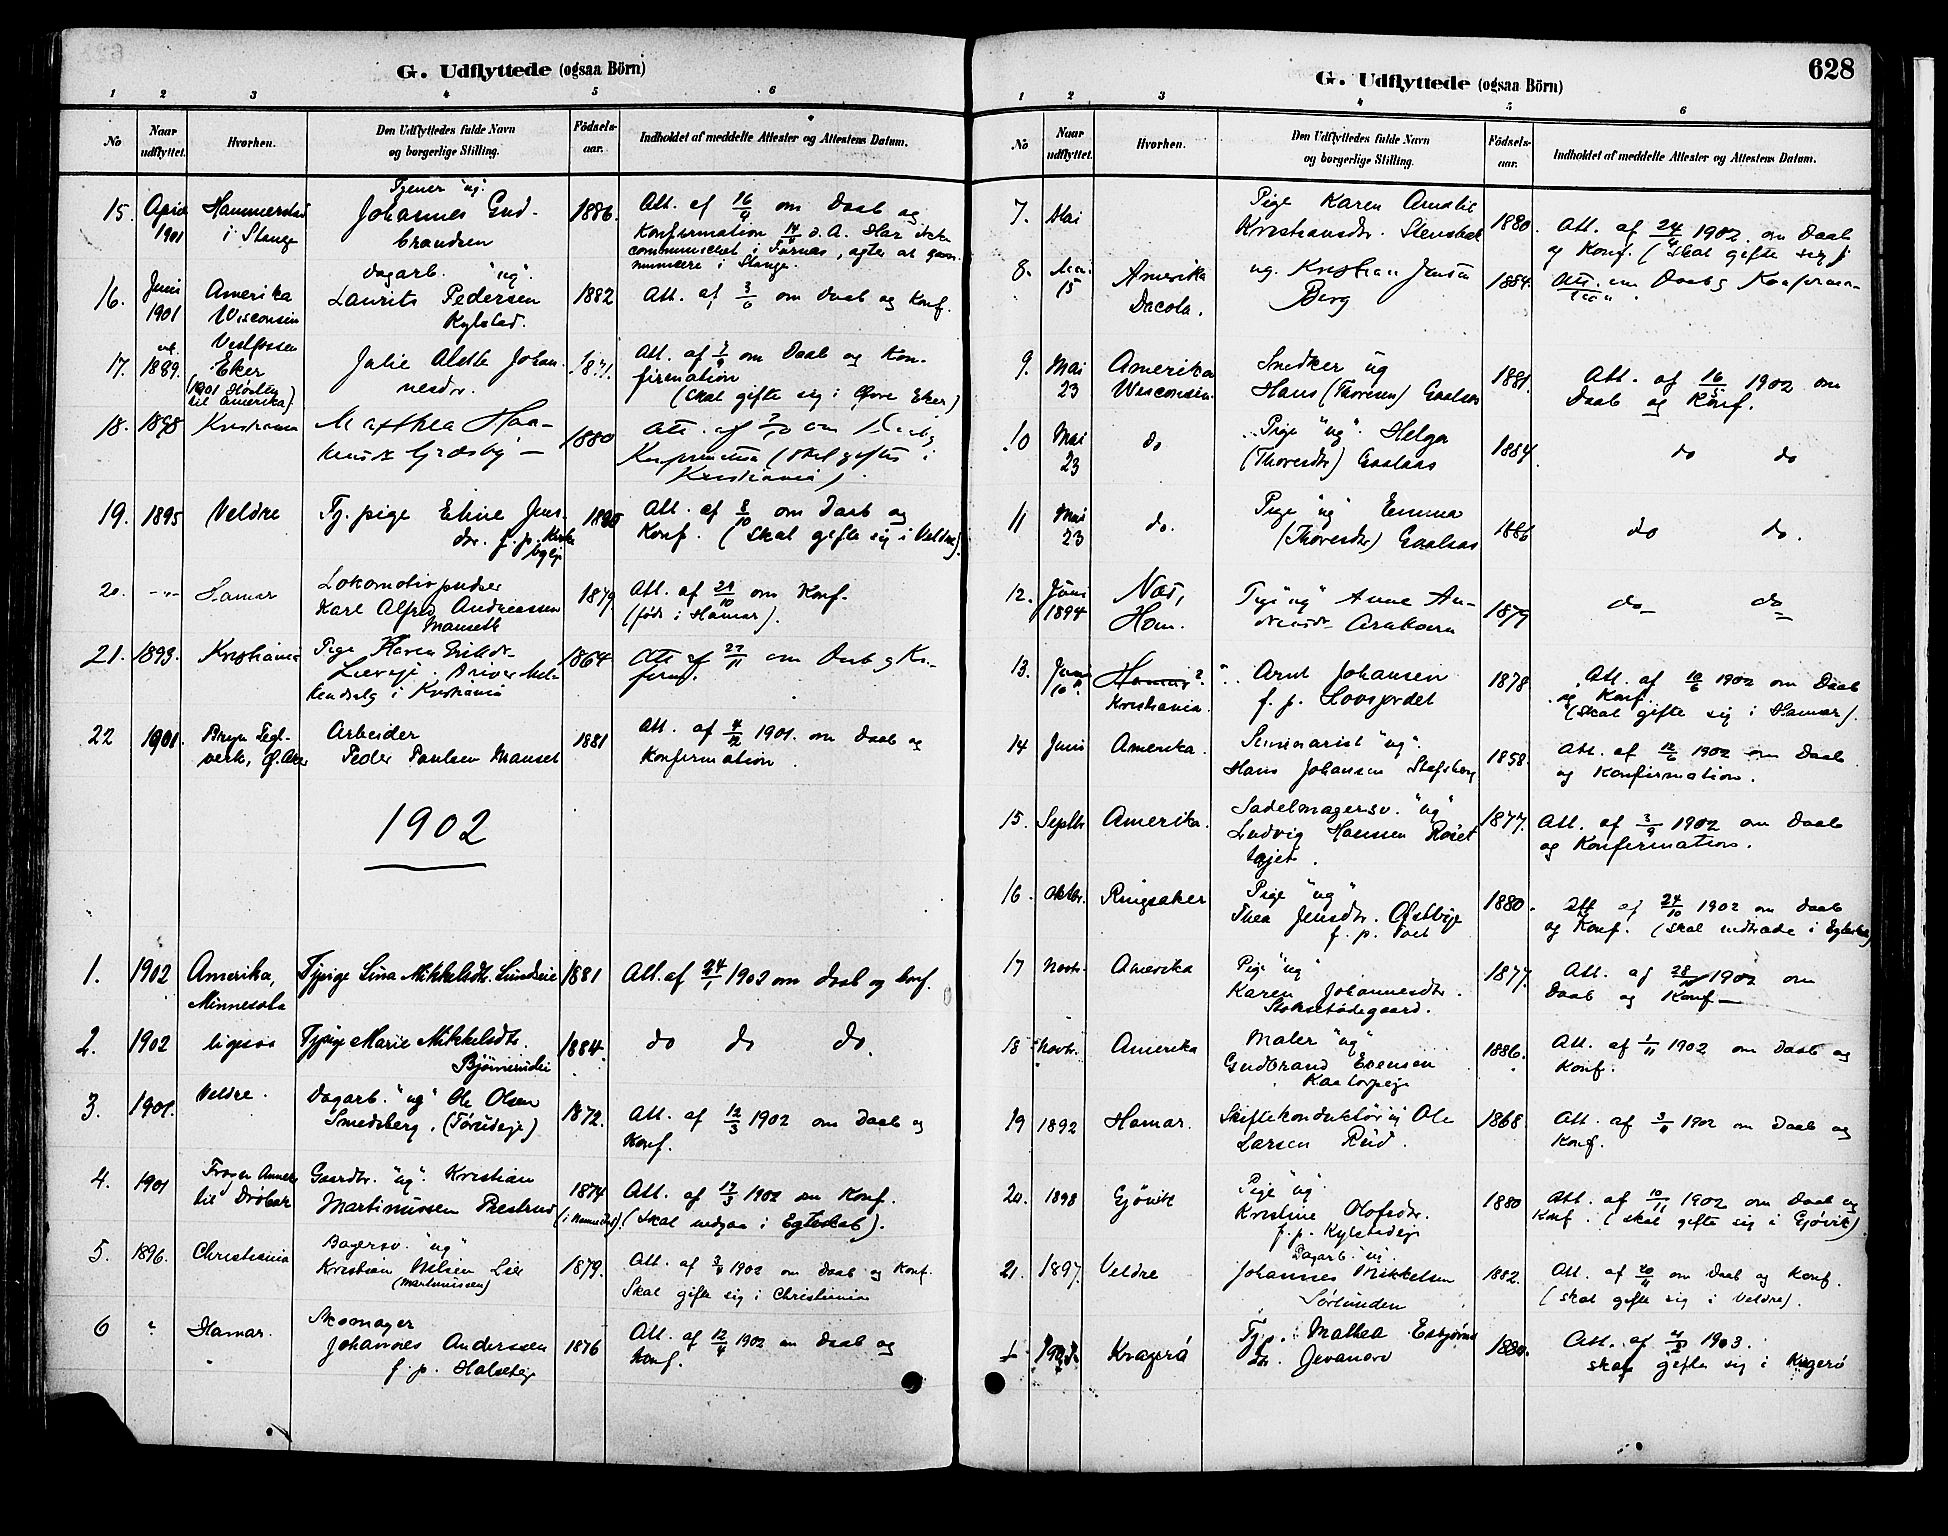 G. Udflyttede (ogsaa Börn)
1 2 3 4 5 6
No
Naar udflyttet.
Hvorhen.
Den Udflyttedes fulde Navn og borgerlige Stilling.
Födsels-aar.
Indholdet af meddelte Attester og Attestens Datum.
15. April 1901 Hammerstad i Stange
Tjener "ug".
Johannes Gud-
brandsen
1886.
Att. af 16/4 om Daab og
Konfirmation 14/4 d. A. Har ikke
communiceret i Furnæs, agter at
i Stange.
16. Juni 1901 Amerika Wisconsin
Dagarb. "ug".
Laurits Pedersen
Kylstad.
1882
Att. af 3/6 om Daab og Konf.
17. 1889. Vestfossen Eker
(1901 Høsten til Amerika)
Julie Johan-
nesdr.
Att. af om Daab og Kon-
firmation
(skal gifte sig i Øvre Eker)
18. 1898 Kristiania
Matthea Haa-
1880
Kristiania)
19. 1895 Veldre
Tj. pige Eline Jens-
dr. f. p.
Att. af 8/10 om Daab og
Konf. (Skal gifte sig i Veldre).
20. -"- Hamar
Lokomotivpudser
Karl Alfred Andreassen
Manseth
1879
Att. af 28/10 om Konf.
(født i Hamar).
21. 1893. Kristiania
Pige Karen
i Kristiania
1864
Att. af 27/11 om Daab og Kon-
firm.
22 1901. Bryn Tegl-
verk, Ø. Aker
Arbeider
Peder Paulsen Manset
1881
Att. af 4/12 1901. om Daab og
Konfirmation.
1902
1. 1902 Amerika, Minnesota
Tjpige Lina Mikkelsdt. Lundseie
1881
Att. af 24/1 1902 om Daab og konf.
2. 1902 ligesaa
Tjpige Marie Mikkelsdt.
1884.
do do do.
3. 1901. Veldre.
Dagarb. "ug" Ole Olsen
Smedsberg. (Førideje)
1872.
Att. af 12/3 1902 om Daab og
Konf.
4. 1901 Frogn Annex til Drøbak
Gaardbr. "ug". Kristian
Martinussen Prestrud
1874
Att. af 17/3 1902 om Konf.
(Skal indgaa i Egteskab).
5. 1896. Christiania
Bagersv. "ug"
Kristian Nilsen Lie
(Martinussen)
1879.
Att. af 3/4 1902 om Daab og Konf.
Skal gifte sig i Christiania
6 Hamar.
Skomager
Johannes Anderssen
f. p. Halseteje
1876
Att. af 12/4 1902 om Daab og
Konf.
628
G. Udflyttede (ogsaa Börn)
1 2 3 4 5 6
No
Naar udflyttet.
Hvorhen.
Den Udflyttedes fulde Navn og borgerlige Stilling.
Födsels-aar.
Indholdet af meddelte Attester og Attestens Datum.
7. Mai
Pige Karen Amalie
Kristiansdtr. Stensbak
1880.
Att. af 24/4 1902. om Daab
og Konf. (Skal gifte sig)
8. Mai 15 Amerika Dacota.
ug. Kristian Jensen
Berg
1884.
Att. om Daab og Konfirma-
9. Mai 23 Amerika Wisconsin.
Snedker ug
Hans (Thoresen) Gaalaas
1881.
Att. af 16/5 1902 om
Daab og Konf.
10 Mai 23 do
Pige "ug". Helga
(Thoresdtr) Gaalaas
1884.
do do
11 Mai 23 do.
Pige "ug" Emma
(Thoresdtr) Gaalaas
1886
do do.
12. Juni 1894 Næs, Hom.
"ug" Anne An-
1879
do do
13. Juni 10 Hamar? Kristiania.
Arnt Johansen
f. p. Lovsjordet
1878
Att. af 10/6 1902 om Daab
og Konf.
(skal gifte sig i Hamar).
14 Juni Amerika.
Seminarist "ug".
Hans Johansen Stafsberg
1858.
Att. af 12/6 1902 om Daab
og Konfirmation.
15. Septbr Amerika.
Sadelmagersv. "ug"
Ludvig Hansen
1877.
Att. af 3/9 1902 om Daab
og Konfirmation.
16 Oktbr. Ringsaker
Pige "ug"
Thea Jensdtr. Østbye
f. p.
1880.
Att. af 24/10 1902 om Daab
og Konf. (Skal indtræde i Egteskab)
17 Novbr. Amerika
Pige "ug"
Karen Johannesdtr.
Stoksetødegaard.
1877.
Att. af 28/10 1902 om
Daab og Konf.
18 Novbr. Amerika
Maler "ug"
Gudbrand Evensen
Kaatorpeje
1886.
Att. af 1/11 1902 om Daab og
Konf.
19 1892 Hamar.
Skiftekonduktør ug Ole
Larsen Rud.
1868.
Att. af 3/11 1902 om Daab og
Konf.
20. 1898 Gjøvik
Pige "ug".
Kristine Olofsdtr.
f. p. Kylstadeje
1880
Att. af 10/11 1902 om Daab og
Konf. (skal gifte sig i Gjøvik)
21. 1897. Veldre
Dagarb. "ug".
Johannes Mikkelsen
Sørlunden
1882.
Att. af 20/11 om Daab og Konf.
(skal gifte sig i Veldre).
1 Kragerø
Tj. p. Mathea Esbjørns-
dr.
1880.
Att. af 1903.
skal gifte sig i Kragerø